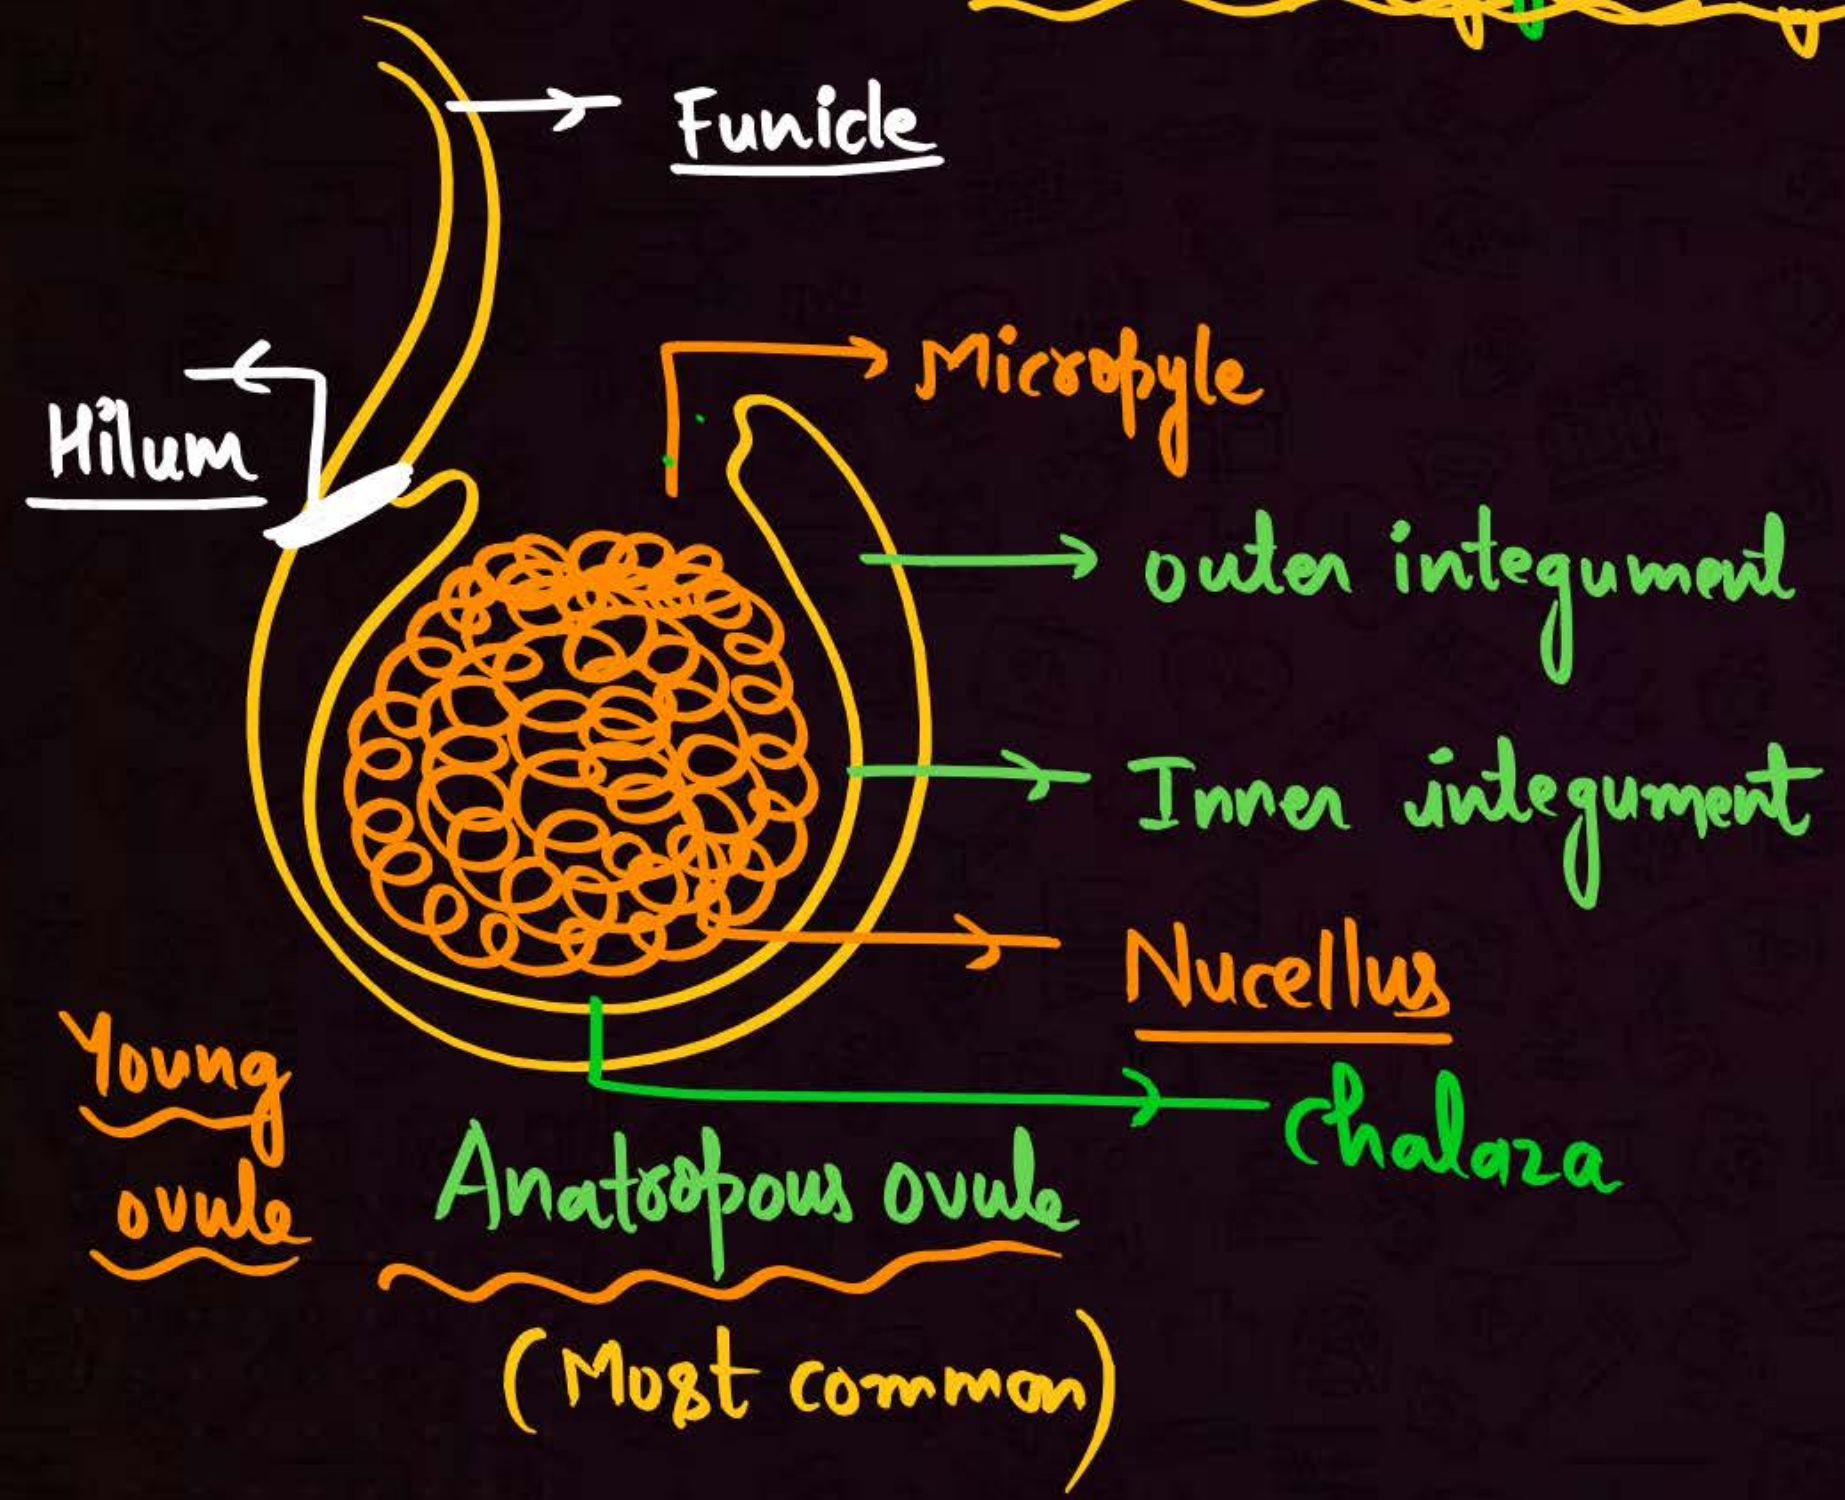 Funicle
Micropyle
Hilum
outer integument
Inner integument
Nucellus
Chalaza
Young
ovule
Anatropous ovule
(Most common)